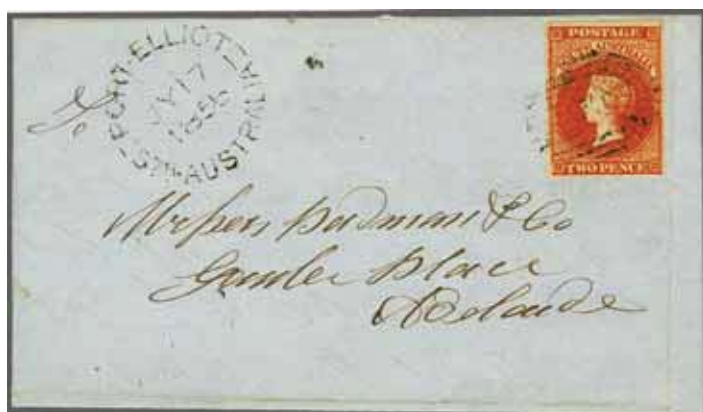 PORT-ELLIOT
MY 17
1856
STH-AUSTRALIA
POSTAGE
SOUTH AUSTRALIA
TWO PENCE
Messrs & Co
Gawler Place
Adelaide